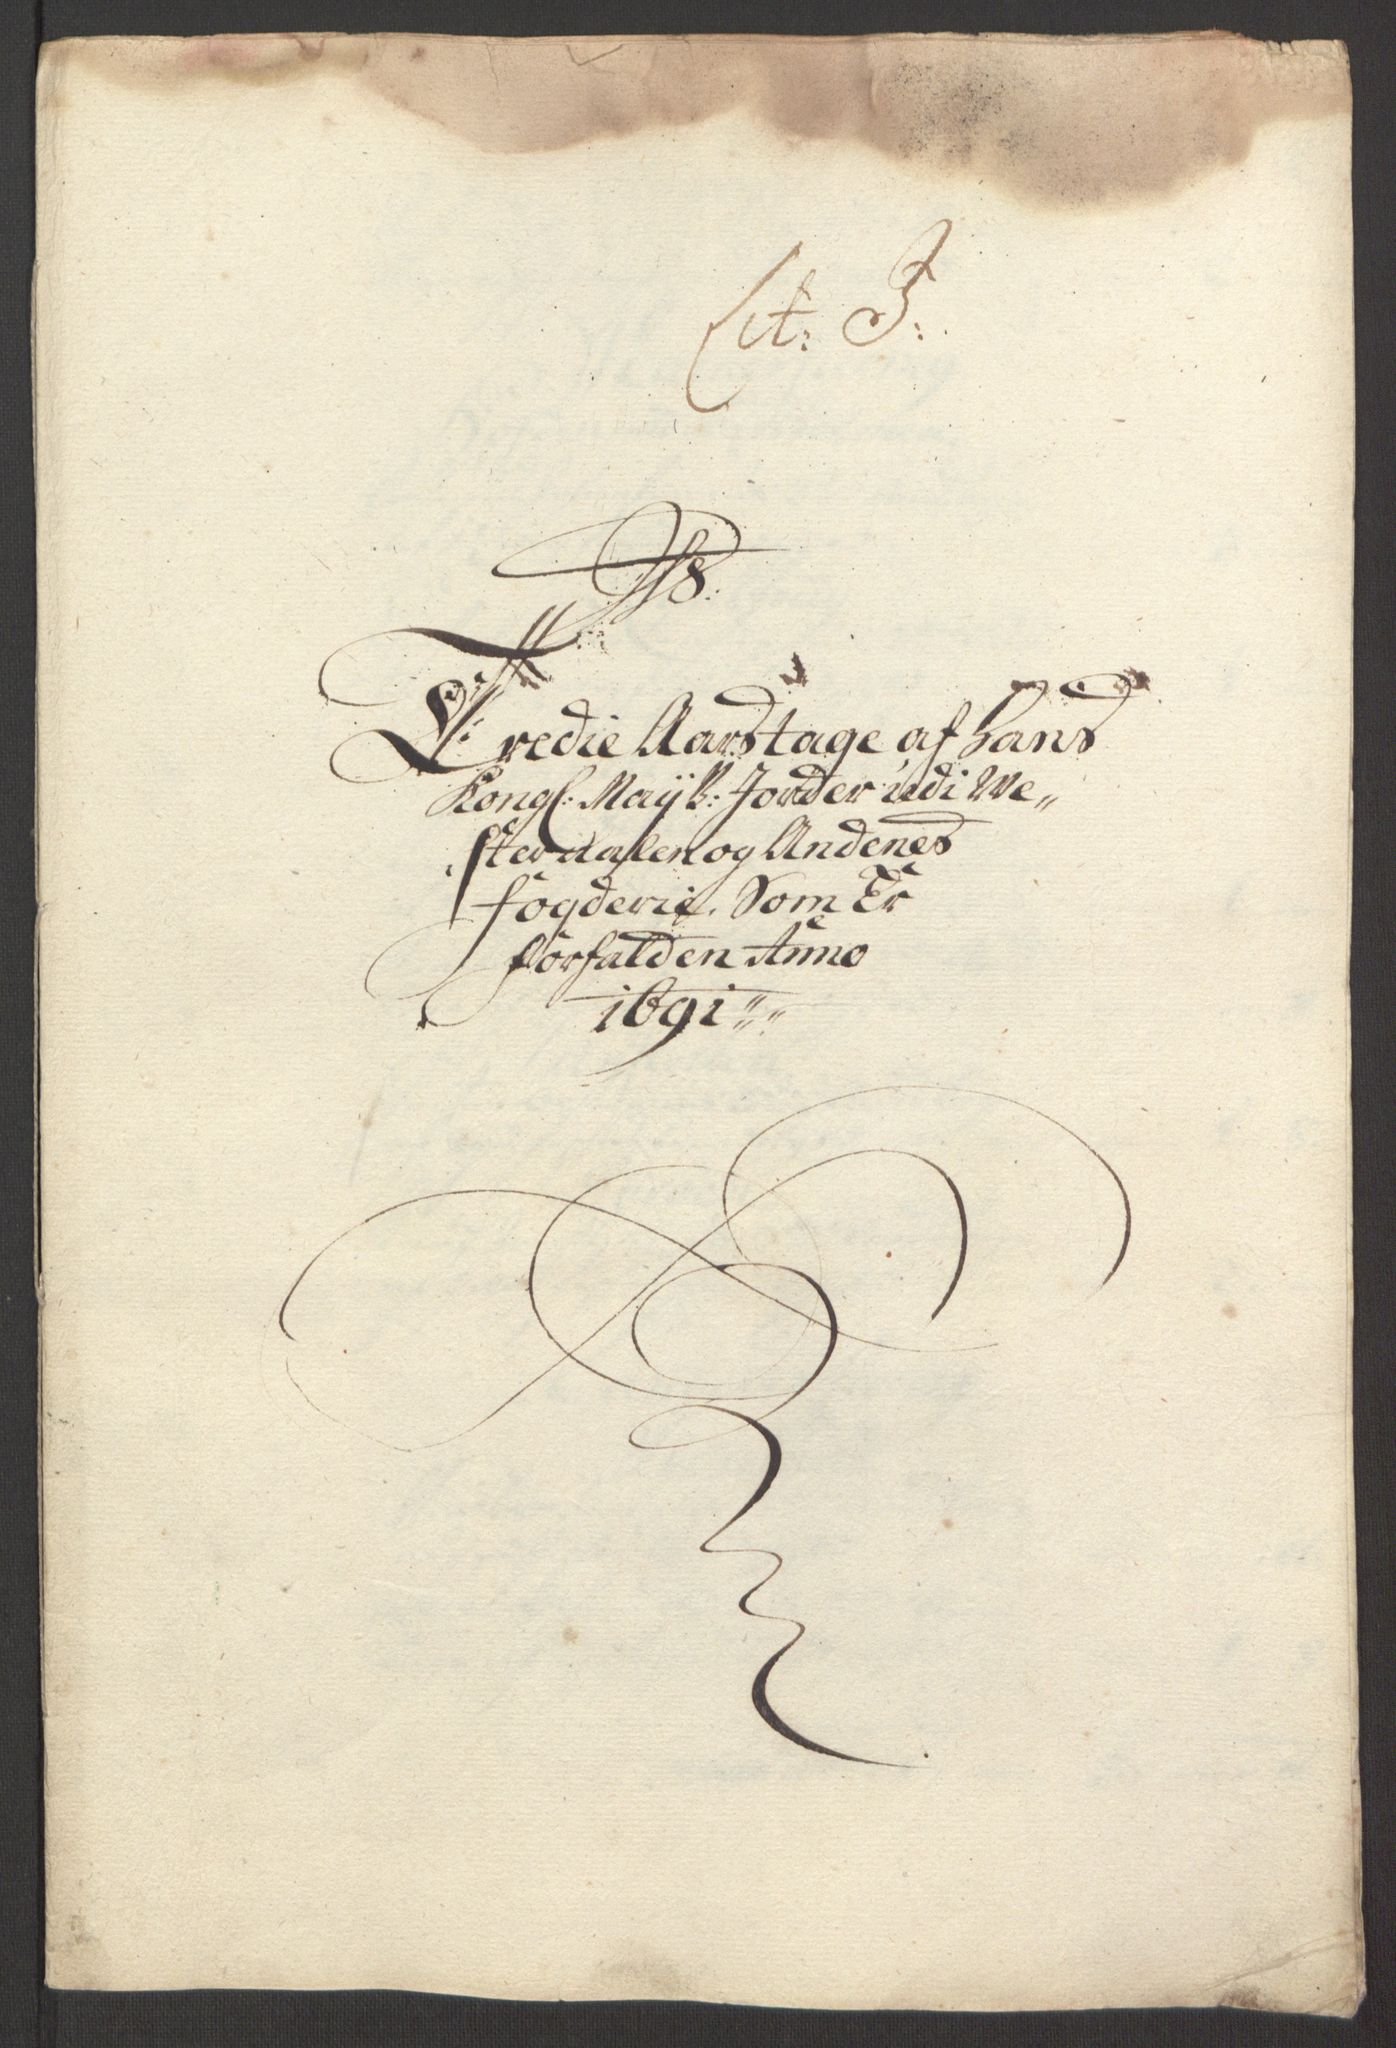 Lit: J:
Tredie Aarstage af hans
Kongl: Mayts: Jorder udi We„
steraalen og Andenes
fogderie. Som Er
forfalden Anno
1691